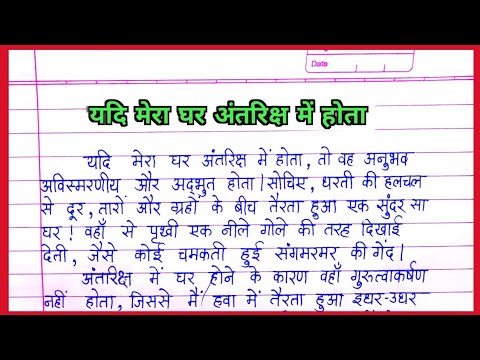 Date
यदि मेरा घर अंतरिक्ष में होता
यदि मेरा घर अंतरिक्ष में होता, तो वह अनुभव
अविस्मरणीय और अद्भुत होता। सोचिए, धरती की हलचल
से दूर, तारों और ग्रहों के बीच तैरता हुआ एक सुंदर सा
घर! वहाँ से पृथ्वी एक नीले गोले की तरह दिखाई
देती, जैसे कोई चमकती हुई संगमरमर की गेंद।
अंतरिक्ष में घर होने के कारण वहाँ गुरुत्वाकर्षण
नहीं होता, जिससे मैं हवा में तैरता हुआ इधर-उधर